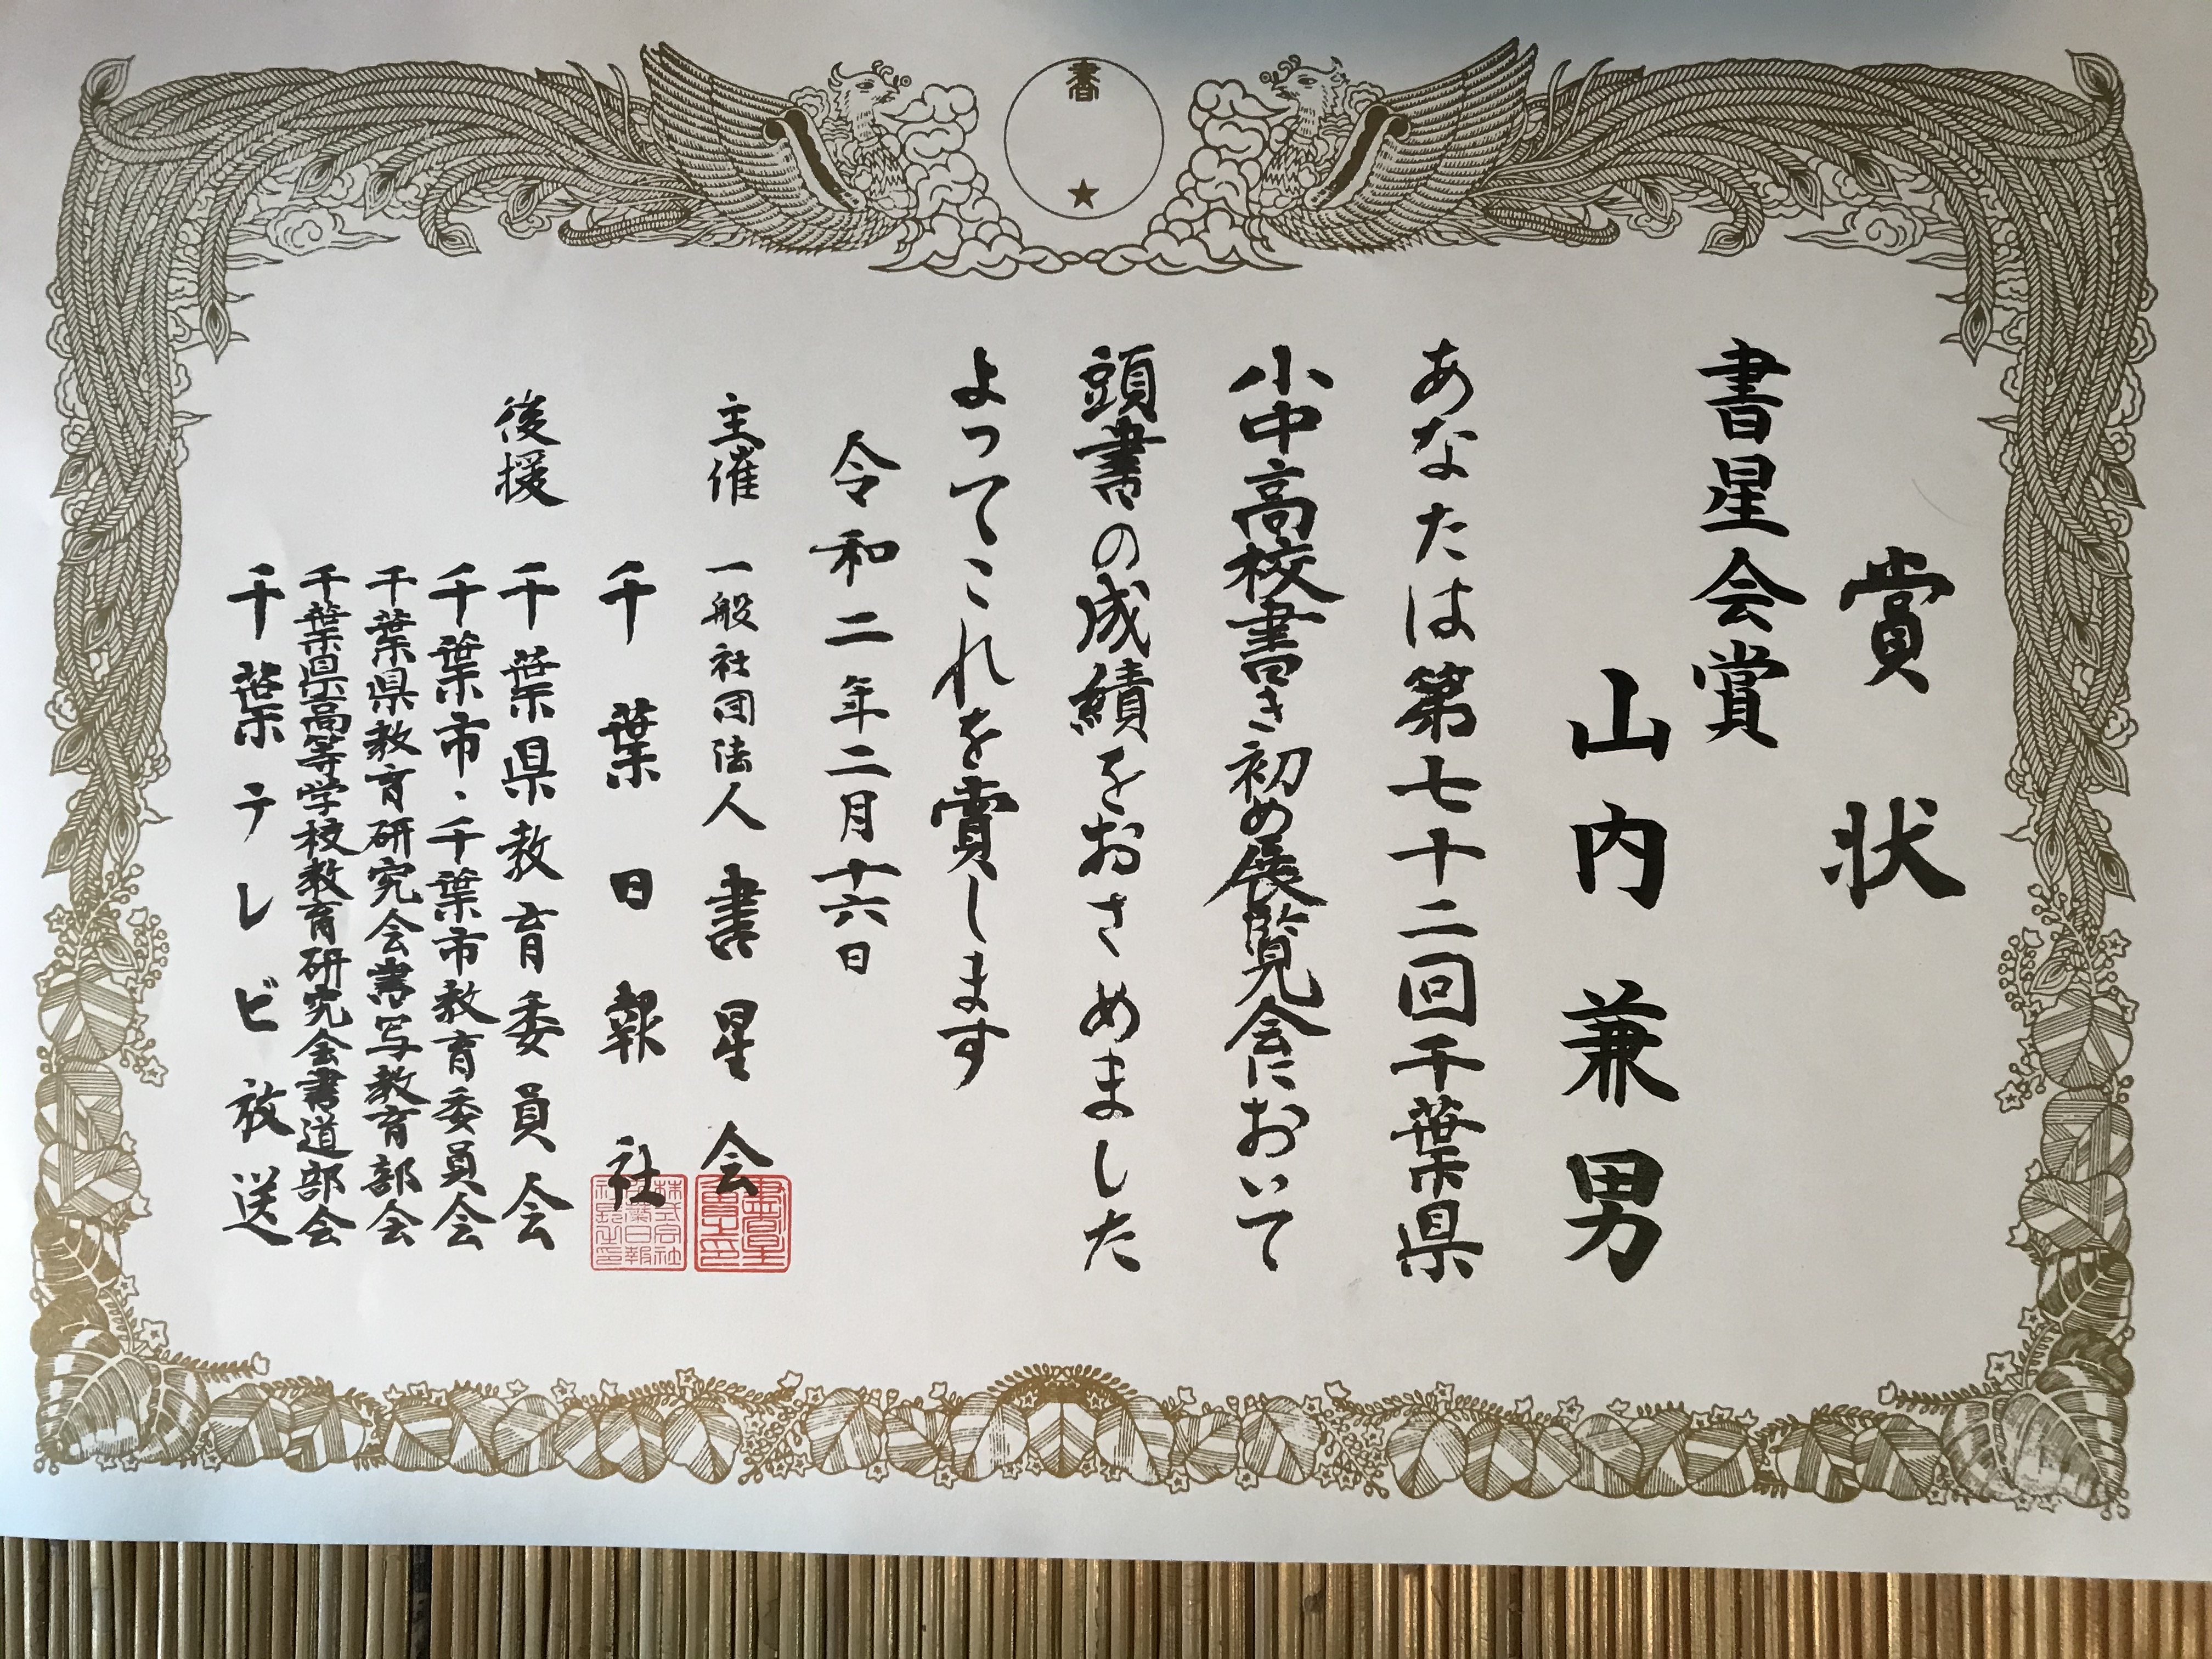 賞状
書星会賞
山内兼男
あなたは第七十二回千葉県
小中高校書き初め展覧会において
頭書の成績をおさめました
よってこれを賞します
令和二年二月十六日
主催 一般社団法人 書星会
千葉日報社
後援 千葉県教育委員会
千葉市・千葉市教育委員会
千葉県教育研究会書写教育部会
千葉県高等学校教育研究会書道部会
千葉テレビ放送